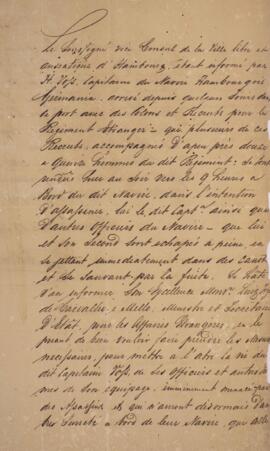 Le Soussigné vice Consul de la Ville libre et
anséatique d'Hambourg, étant informé par
H. Voss, Capitaine du Navire Hambourgois
Germania, arrivé depuis quelques Jours dans
ce port avec des Colons et Recruts pour le
Regiment Etranger - que plusieurs de ces
Recruts, accompagnés d'à peu près douze
à Quinze hommes du dit Regiment, se sont
hier au Soir vers les 9 heures à
Bord du dit Navire, dans l'intention
d'assassiner, lui le dit Capt. ainsi que
D'autres Officiers du Navire - que lui
et son Second sont echapés a peine, en
se jettant immediatement dans des
et se Sauvant par la fuite. Se
d'en informer Son Excellence Monsr. Luiz José
de Carvalho e Mello, Ministre et Secretaire
D'Etat, pour les Affaires Etrangeres, en le
priant de bien vouloir faire prendre les Mesures
necessaires, pour mettre a l'abri la vie du
dit Capitaine Voss, de ses Officiers et autres
de son equipage, imminement menacés par
des Assassins et qui n'auront desormais d'au
Sureté a bord de leur Navire, que celle